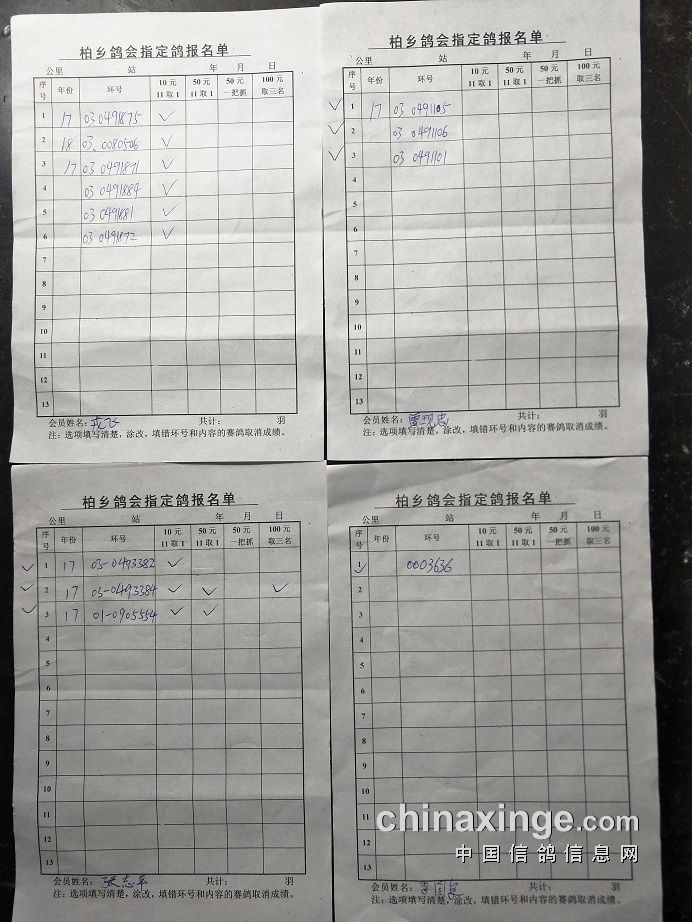 柏乡鸽会指定鸽报名单
公里 站 年 月 日
序号 年份 环号 10元 11取1 50元 11取1 50元 一把抓 100元 取三名
1 17 03 0491875 ✓
2 18 03 0080506 ✓
3 17 03 0491871 ✓
4 03 0491884 ✓
5 03 0491881 ✓
6 03 0491872 ✓
7
8
9
10
11
12
13
会员姓名： 共计： 羽
注：选项填写清楚，涂改，填错环号和内容的赛鸽取消成绩。
柏乡鸽会指定鸽报名单
公里 站 年 月 日
序号 年份 环号 10元 11取1 50元 11取1 50元 一把抓 100元 取三名
✓ 1 17 03 0491105
✓ 2 03 0491106
✓ 3 03 0491101
4
5
6
7
8
9
10
11
12
13
会员姓名： 共计： 羽
注：选项填写清楚，涂改，填错环号和内容的赛鸽取消成绩。
柏乡鸽会指定鸽报名单
公里 站 年 月 日
序号 年份 环号 10元 11取1 50元 11取1 50元 一把抓 100元 取三名
✓ 1 17 03-0493382 ✓
✓ 2 17 03-0493384 ✓ ✓ ✓
✓ 3 17 01-0905554 ✓ ✓
4
5
6
7
8
9
10
11
12
13
会员姓名：张志平 共计： 羽
注：选项填写清楚，涂改，填错环号和内容的赛鸽取消成绩。
柏乡鸽会指定鸽报名单
公里 站 年 月 日
序号 年份 环号 10元 11取1 50元 11取1 50元 一把抓 100元 取三名
1 ✓ 0003636
2
3
4
5
6
7
8
9
10
11
12
13
会员姓名： 共计： 羽
注：选项填写清楚，涂改，填错环号和内容的赛鸽取消成绩。
chinaxinge.com
中国信鸽信息网